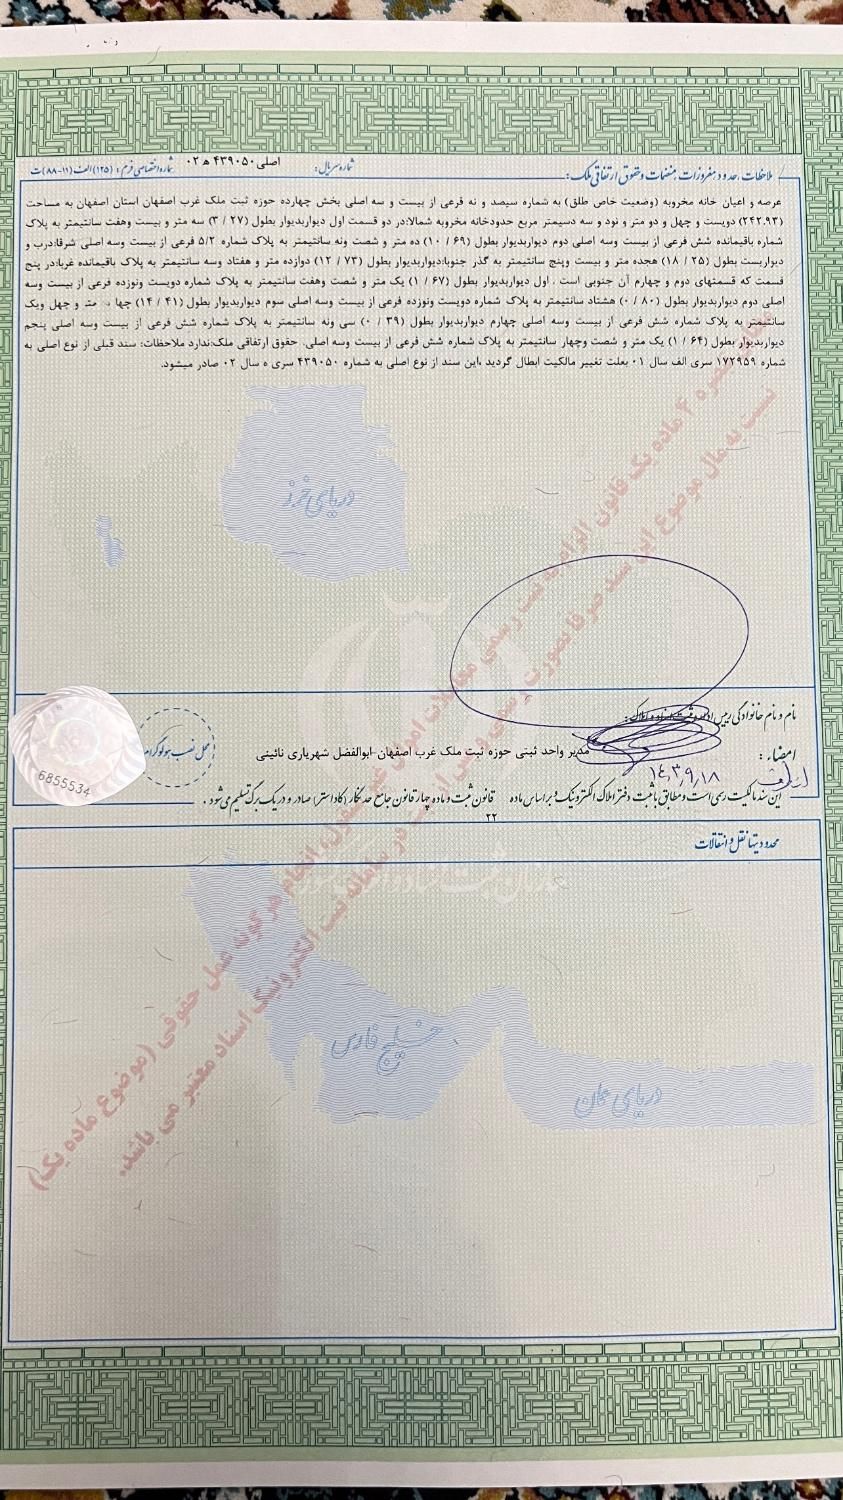 ملاحظات ، حدود مفروزات، منضمات و حقوق ارتفاقی ملک :
شماره سریال :
اصلی ۴۳۹۰۵۰ ه ۰۲
شماره اختصاصی فرم : (۱۲۵) الف (۱۱-۸۸) ت
عرصه و اعیان خانه مخروبه (وضعیت خاص طلق) به شماره سیصد و نه فرعی از بیست و سه اصلی بخش چهارده حوزه ثبت ملک غرب اصفهان استان اصفهان به مساحت
(۲۴۲.۹۳) دویست و چهل و دو متر و نود و سه دسیمتر مربع حدودخانه مخروبه شمالا:در دو قسمت اول دیواربدیوار بطول (۲۷ / ۳) سه متر و بیست وهفت سانتیمتر به پلاک
شماره باقیمانده شش فرعی از بیست وسه اصلی دوم دیواربدیوار بطول (۶۹ / ۱۰) ده متر و شصت ونه سانتیمتر به پلاک شماره ۵/۲ فرعی از بیست وسه اصلی شرقا:درب و
دیواریست بطول (۲۵ / ۱۸) هجده متر و بیست وپنج سانتیمتر به گذر جنوبا:دیواربدیوار بطول (۷۳ / ۱۲) دوازده متر و هفتاد وسه سانتیمتر به پلاک باقیمانده غربا:در پنج
قسمت که قسمتهای دوم و چهارم آن جنوبی است . اول دیواربدیوار بطول (۶۷ / ۱) یک متر و شصت وهفت سانتیمتر به پلاک شماره دویست ونوزده فرعی از بیست وسه
اصلی دوم دیواربدیوار بطول (۸۰ / ۰) هشتاد سانتیمتر به پلاک شماره دویست ونوزده فرعی از بیست وسه اصلی سوم دیواربدیوار بطول (۴۱ / ۱۴) متر و چهل ویک
سانتیمتر به پلاک شماره شش فرعی از بیست وسه اصلی چهارم دیواربدیوار بطول (۳۹ / ۰) سی ونه سانتیمتر به پلاک شماره شش فرعی از بیست وسه اصلی پنجم
دیواربدیوار بطول (۶۴ / ۱) یک متر و شصت وچهار سانتیمتر به پلاک شماره شش فرعی از بیست وسه اصلی. حقوق ارتفاقی ملک:ندارد ملاحظات: سند قبلی از نوع اصلی به
شماره ۱۷۲۹۵۹ سری الف سال ۰۱ بعلت تغییر مالکیت ابطال گردید ،این سند از نوع اصلی به شماره ۴۳۹۰۵۰ سری ه سال ۰۲ صادر میشود.
دریای خزر
تبصره ۴ ماده یک قانون الزام به ثبت رسمی معاملات اموال غیر منقول، انجام هر گونه عمل حقوقی (موضوع ماده یک)
نسبت به مال موضوع این سند صرفا بصورت رسمی و پس از ثبت در سامانه ثبت الکترونیک اسناد معتبر می باشد.
نام و نام خانوادگی رییس اداره ثبت اسناد و املاک :
امضاء :
مدیر واحد ثبتی حوزه ثبت ملک غرب اصفهان-ابوالفضل شهریاری نائینی
محل نصب هولوگرام
6855534
۱۴۰۳,۹,۱۸
این سند مالکیت رسمی است و مطابق با ثبت دفتر املاک الکترونیک و بر اساس ماده ۲۲ قانون ثبت و ماده چهار قانون جامع حدنگار (کاداستر) صادر و در یک برگ تسلیم می شود .
محدودیتها نقل و انتقالات
خلیج فارس
دریای عمان